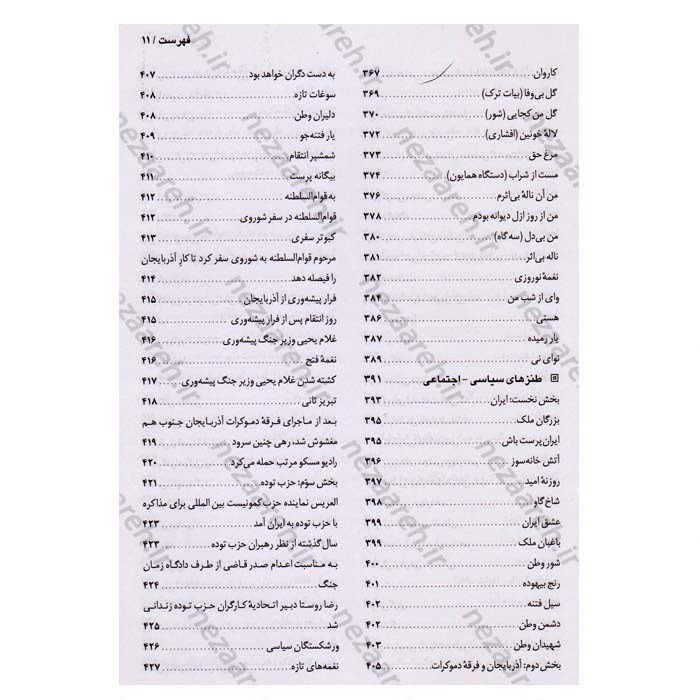 فهرست / ۱۱
کاروان ۳۶۷
گل بی‌وفا (بیات ترک) ۳۶۹
گل من کجایی (شور) ۳۷۰
لالهٔ خونین (افشاری) ۳۷۲
مرغ حق ۳۷۳
مست از شراب (دستگاه همایون) ۳۷۴
من آن نالهٔ بی‌اثرم ۳۷۶
من از روز ازل دیوانه بودم ۳۷۸
من بی‌دل (سه گاه) ۳۸۰
ناله بی‌اثر ۳۸۱
نغمهٔ نوروزی ۳۸۲
وای از شب من ۳۸۴
هستی ۳۸۶
یار رمیده ۳۸۷
نوای نی ۳۸۹
طنزهای سیاسی - اجتماعی ۳۹۱
بخش نخست: ایران ۳۹۳
بزرگان ملک ۳۹۵
ایران‌پرست باش ۳۹۵
آتش خانه‌سوز ۳۹۶
روزنهٔ امید ۳۹۷
شاخ گاو ۳۹۸
عشق ایران ۳۹۹
باغبان ملک ۳۹۹
شور وطن ۴۰۰
رنج بیهوده ۴۰۱
سیل فتنه ۴۰۲
دشمن وطن ۴۰۲
شهیدان وطن ۴۰۳
بخش دوم: آذربایجان و فرقهٔ دموکرات ۴۰۵
به دست دگران خواهد بود ۴۰۷
سوغات تازه ۴۰۸
دلیران وطن ۴۰۸
یار فتنه‌جو ۴۰۹
شمشیر انتقام ۴۱۰
بیگانه پرست ۴۱۱
به قوام‌السلطنه ۴۱۲
قوام‌السلطنه در سفر شوروی ۴۱۲
کبوتر سفری ۴۱۳
مرحوم قوام‌السلطنه به شوروی سفر کرد تا کار آذربایجان
را فیصله دهد ۴۱۴
فرار پیشه‌وری از آذربایجان ۴۱۵
روز انتقام پس از فرار پیشه‌وری ۴۱۵
غلام یحیی وزیر جنگ پیشه‌وری ۴۱۶
نغمهٔ فتح ۴۱۶
کشته شدن غلام یحیی وزیر جنگ پیشه‌وری ۴۱۷
تبریز ثانی ۴۱۸
بعد از ماجرای فرقهٔ دموکرات آذربایجان جنوب هم
مغشوش شد، رهی چنین سرود ۴۱۹
رادیو مسکو مرتب حمله می‌کرد ۴۲۰
بخش سوّم: حزب توده ۴۲۱
العریس نماینده حزب کمونیست بین المللی برای مذاکره
با حزب توده به ایران آمد ۴۲۳
سال گذشته از نظر رهبران حزب توده ۴۲۳
به مناسبت اعدام صدر قاضی از طرف دادگاه زمان
جنگ ۴۲۴
رضا روستا دبیر اتحادیهٔ کارگران حزب توده زندانی
شد ۴۲۵
ورشکستگان سیاسی ۴۲۶
نغمه‌های تازه ۴۲۷
nezaareh.ir